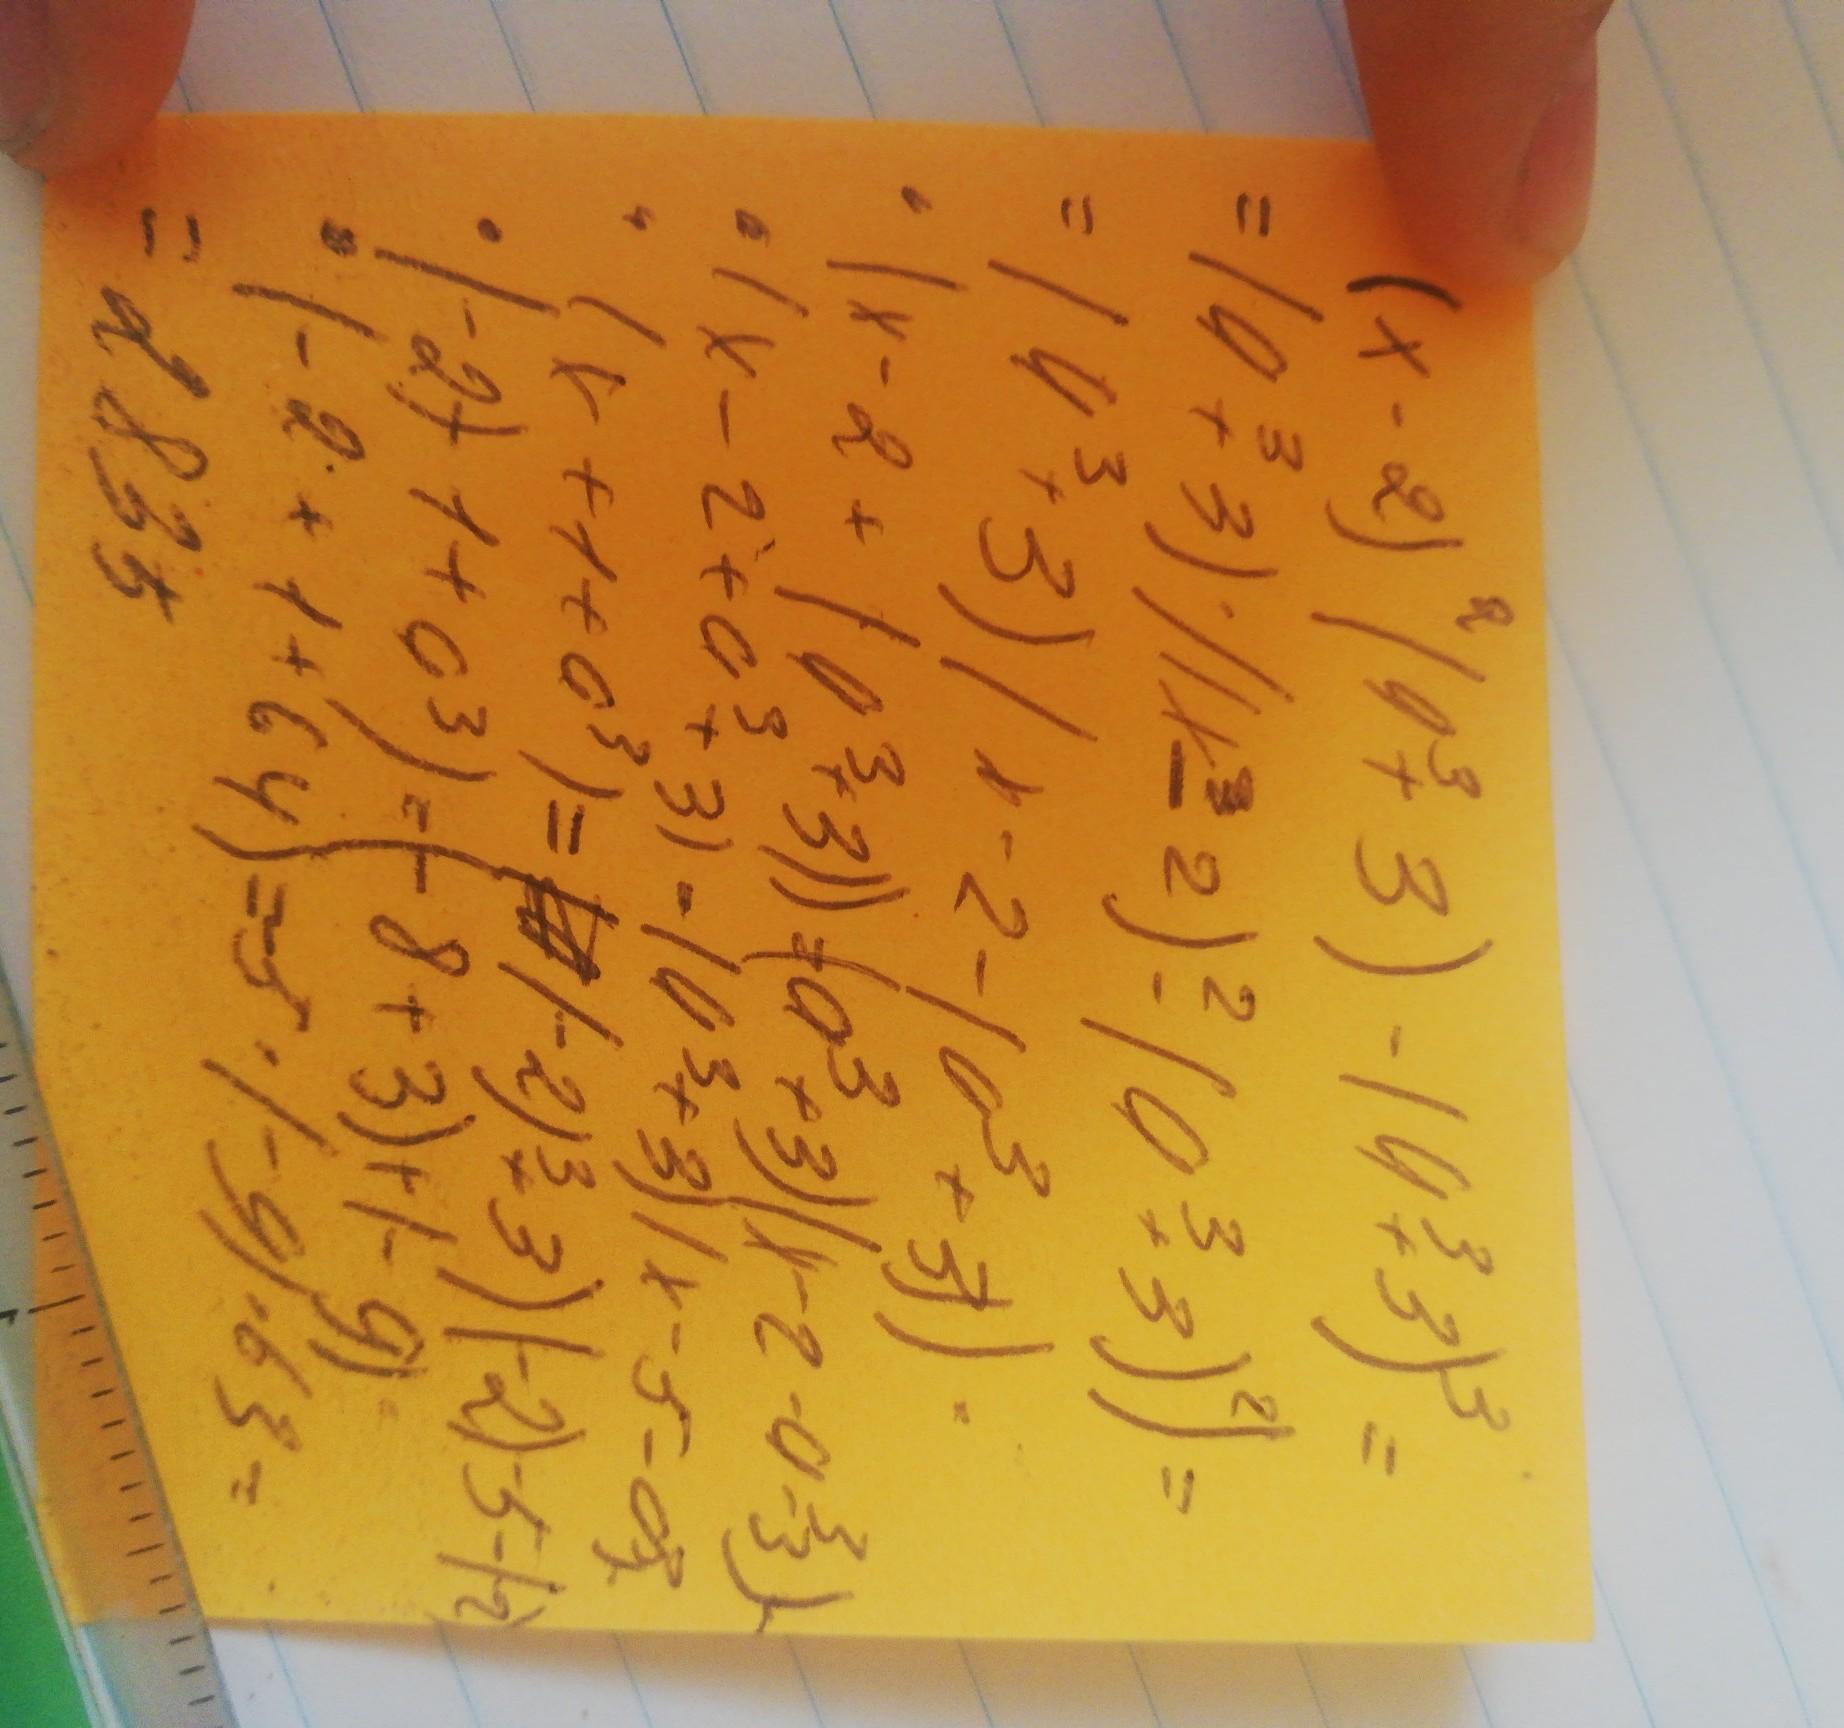 (x-2)²(a³+3)-(a³+3)³=
=(a³+3)·((x-2)²-(a³+3)²)=
=(a³+3)(x-2-(a³+3))·
·(x-2+(a³+3))=(a³+3)(x-2-a³-3)·
·(x-2+a³+3)=(a³+3)(x-5-a³)·
·(x+1+a³)=(-2)³+3)(-2)-5-(-2)
·(-2)+1+a³)=(-8+3)·(-9)·
·(-2+1+64)=-5·(-9)·63=
=2835